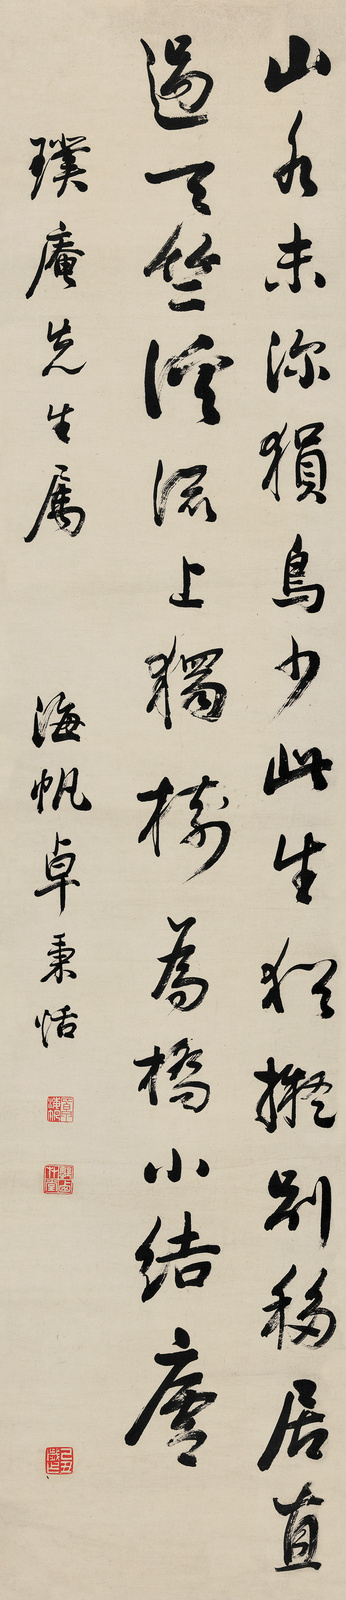 山水未深猿鳥少此生猶擬別移居直
過天竺溪流上獨樹為橋小結廬
璞庵先生属 海帆卓秉恬